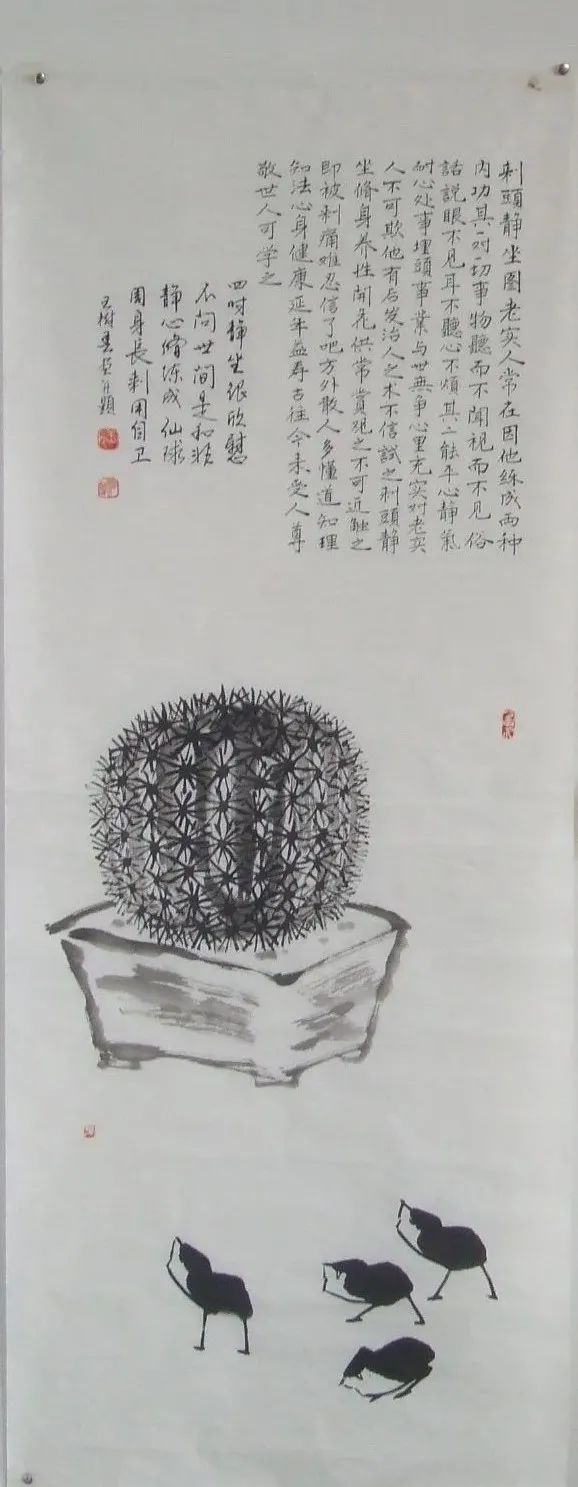 刺頭静坐圖老实人常在因他练成两种
内功其一对一切事物聽而不闻视而不见俗
話説眼不见耳不聽心不煩其二能平心静氣
耐心处事埋頭事業与世無争心里充实对老实
人不可欺他有后发治人之术不信試之刺頭静
坐脩身养性開花供常賞观之不可近触之
即被刺痛难忍信了吧方外散人多懂道知理
知法心身健康延年益寿古往今来受人尊
敬世人可学之
四时静坐很欣慰
不问世間是和非
静心脩练成仙球
周身長刺用自卫
王树春